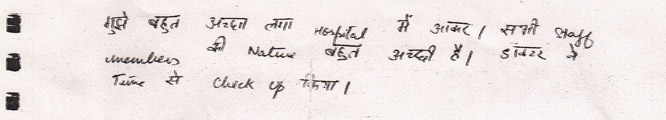 मुझे बहुत अच्छा लगा Hospital में आकर। सभी staff
members की Nature बहुत अच्छी है। डॉक्टर ने
Time से check up किया।